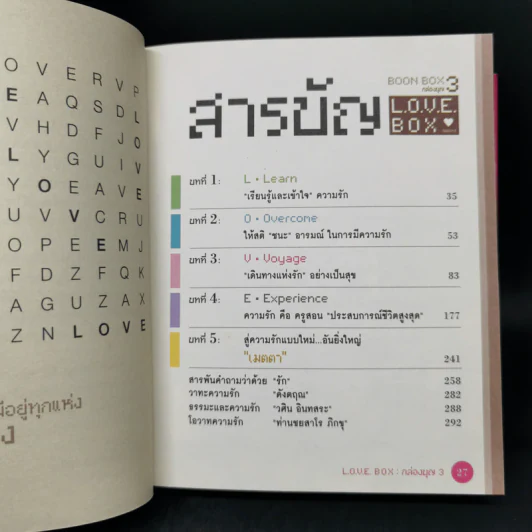 O V E R V P
E A Q S D L
V H D F J O
L Y G U I V
Y O E A V E
U V V C R U
O P E E M J
F D Z F Q K
A G U Z A X
Z N L O V E
มีอยู่ทุกแห่ง
BOON BOX 3
กล่องบุญ
สารบัญ
L.O.V.E.
BOX
บทที่ 1: L • Learn
"เรียนรู้และเข้าใจ" ความรัก 35
บทที่ 2: O • Overcome
ให้สติ "ชนะ" อารมณ์ ในการมีความรัก 53
บทที่ 3: V • Voyage
"เดินทางแห่งรัก" อย่างเป็นสุข 83
บทที่ 4: E • Experience
ความรัก คือ ครูสอน "ประสบการณ์ชีวิตสูงสุด" 177
บทที่ 5: สู่ความรักแบบใหม่...อันยิ่งใหญ่
"เมตตา" 241
สารพันคำถามว่าด้วย "รัก" 258
วาทะความรัก "ดังตฤณ" 282
ธรรมะและความรัก "วศิน อินทสระ" 288
โอวาทความรัก "ท่านชยสาโร ภิกขุ" 292
L.O.V.E. BOX : กล่องบุญ 3 27